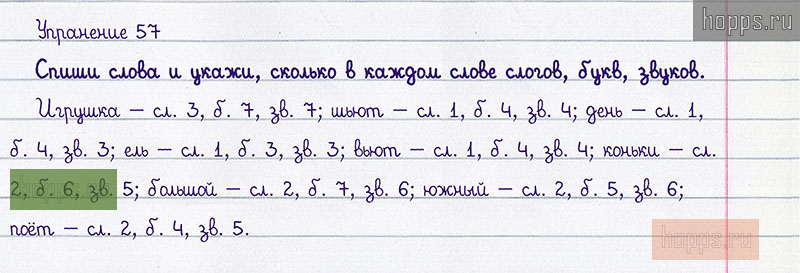 hopps.ru
Упранение 57
Спиши слова и укажи, сколько в каждом слове слогов, букв, звуков.
Игрушка – сл. 3, б. 7, зв. 7; шьют – сл. 1, б. 4, зв. 4; день – сл. 1,
б. 4, зв. 3; ель – сл. 1, б. 3, зв. 3; вьют – сл. 1, б. 4, зв. 4; коньки – сл.
2, б. 6, зв. 5; большой – сл. 2, б. 7, зв. 6; южный – сл. 2, б. 5, зв. 6;
поёт – сл. 2, б. 4, зв. 5.
hopps.ru